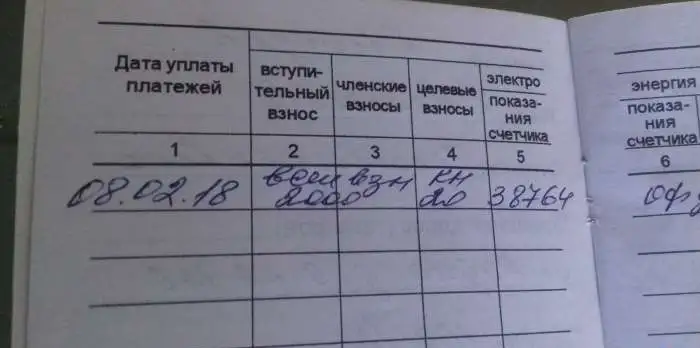 Дата уплаты платежей
вступи-
тельный
взнос
членские
взносы
целевые
взносы
электро
показа-
ния
счетчика
энергия
показа-
ния
счетчика
1 2 3 4 5 6
08.02.18 взн кн 38764
2000 20